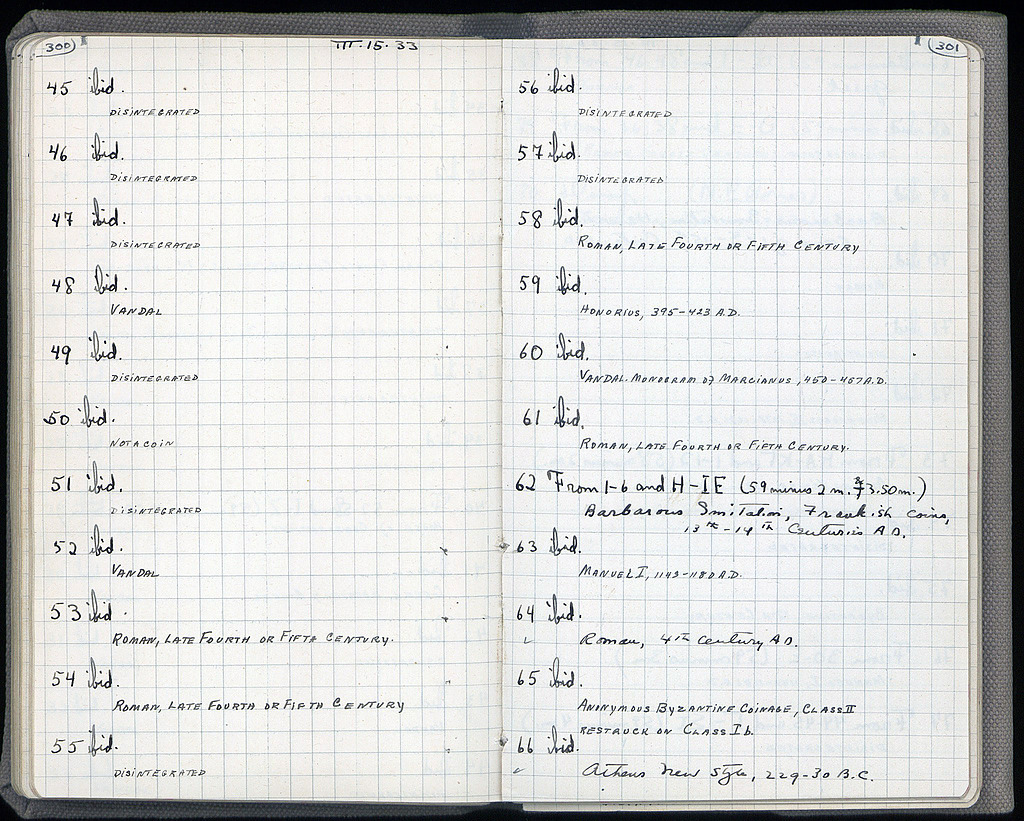 300
III.15.33
45 ibid.
DISINTEGRATED
46 ibid.
DISINTEGRATED
47 ibid.
DISINTEGRATED
48 ibid.
VANDAL
49 ibid.
DISINTEGRATED
50 ibid.
NOT A COIN
51 ibid.
DISINTEGRATED
52 ibid.
VANDAL
53 ibid.
ROMAN, LATE FOURTH OR FIFTH CENTURY.
54 ibid.
ROMAN, LATE FOURTH OR FIFTH CENTURY
55 ibid.
DISINTEGRATED
301
56 ibid.
DISINTEGRATED
57 ibid.
DISINTEGRATED
58 ibid.
ROMAN, LATE FOURTH OR FIFTH CENTURY
59 ibid.
HONORIUS, 395-423 A.D.
60 ibid.
VANDAL. MONOGRAM OF MARCIANUS, 450-457 A.D.
61 ibid.
ROMAN, LATE FOURTH OR FIFTH CENTURY.
62 From 1-6 and H-IE (59 minus 2 m. 3.50 m.)
Barbarous Imitation, Frankish coins,
13th-14th Centuries A.D.
63 ibid.
MANUEL I, 1143-1180 A.D.
64 ibid.
Roman, 4th Century A.D.
65 ibid.
ANONYMOUS BYZANTINE COINAGE, CLASS II
RESTRUCK ON CLASS Ib.
66 ibid.
Athens New Style, 229-30 B.C.